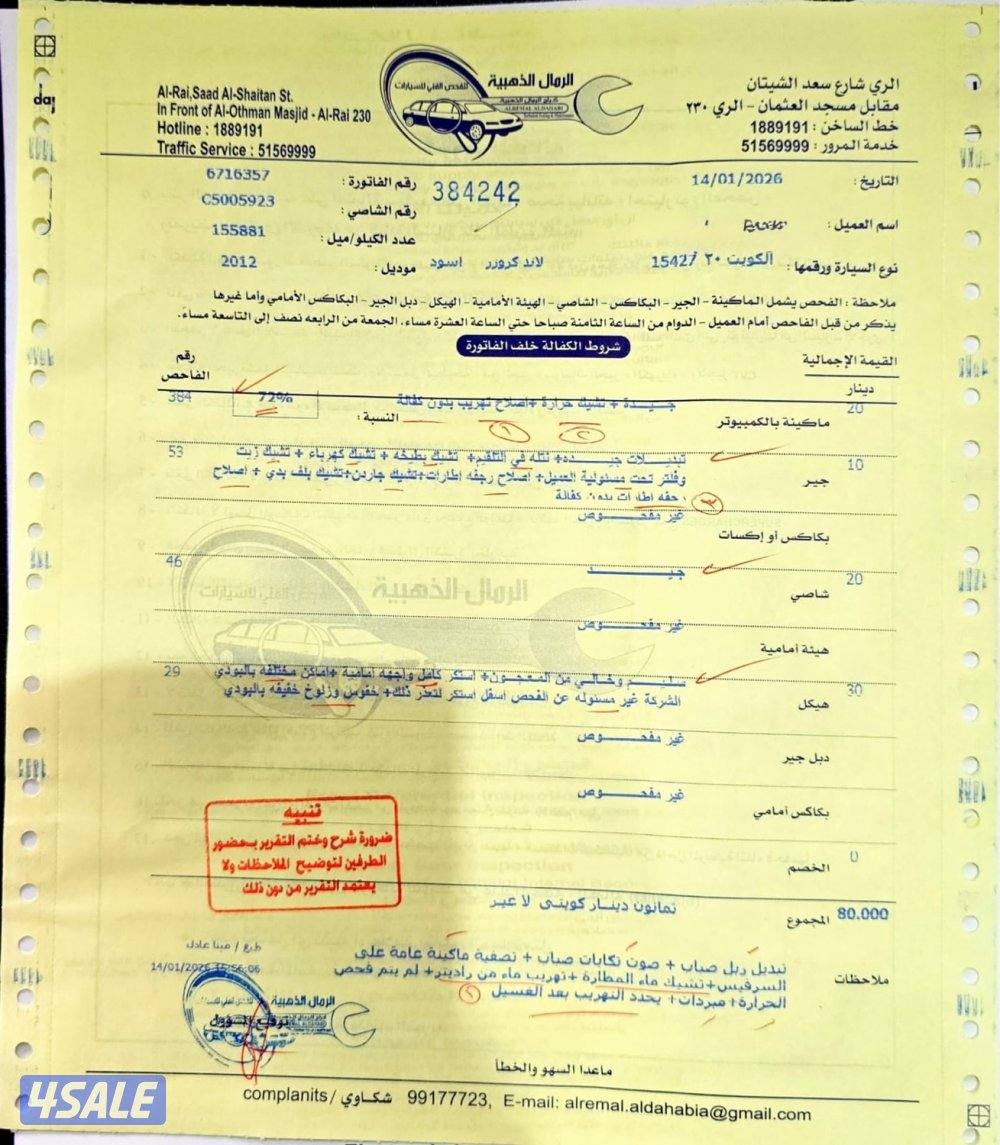 الرمال الذهبية
للفحص الفني للسيارات
كراج الرمال الذهبية
ALREMAL ALDAHABI
Al-Rai,Saad Al-Shaitan St.
In Front of Al-Othman Masjid - Al-Rai 230
Hotline : 1889191
Traffic Service : 51569999
الري شارع سعد الشيتان
مقابل مسجد العثمان - الري ٢٣٠
خط الساخن : 1889191
خدمة المرور : 51569999
التاريخ : 14/01/2026
384242
رقم الفاتورة : 6716357
اسم العميل :
رقم الشاصي : C5005923
عدد الكيلو/ميل : 155881
نوع السيارة ورقمها : الكويت ٢٠ /15427 لاند كروزر اسود
موديل : 2012
ملاحظة : الفحص يشمل الماكينة - الجير - البكاكس - الشاصي - الهيئة الأمامية - الهيكل - دبل الجير - البكاكس الأمامي وأما غيرها
يذكر من قبل الفاحص أمام العميل - الدوام من الساعة الثامنة صباحا حتي الساعة العشرة مساء، الجمعة من الرابعه نصف إلى التاسعة مساءً.
شروط الكفالة خلف الفاتورة
القيمة الإجمالية
دينار
رقم
الفاحص
20 جيـــدة + تشيك حرارة +اصلاح تهريب بدون كفالة 72% 384
ماكينة بالكمبيوتر النسبة :
١ ٢
10 تبديلات جيـــده+ نتله في التلقيم+ تشيك بطيخه + تشيك كهرباء + تشيك زيت 53
جير وفلتر تحت مسئولية العميل+ اصلاح رجفه اطارات+تشيك جاردن+تشيك بلف بدي + اصلاح
رجفه اطارات بدون كفالة ٣
غير مفحـــوص
بكاكس أو إكسات
20 جيـــد 46
شاصي
غير مفحـــوص
هيئة أمامية
30 سليـــم وخـالي من المعجـون+ استكر كامل واجهه امامية +اماكن مختلفه بالبودي 29
هيكل الشركة غير مسئوله عن الفحص اسفل استكر لتعذر ذلك+ خفوس وزلوخ خفيفه بالبودي
غير مفحـــوص
دبل جير
غير مفحـــوص
بكاكس أمامي
0
الخصم
80.000 المجموع ثمانون دينار كويتى لا غير
تنبيه
ضرورة شرح وختم التقرير بحضور
الطرفين لتوضيح الملاحظات ولا
يعتمد التقرير من دون ذلك
طبع / مينا عادل
14/01/2026 15:56:06
ملاحظات
تبديل ربل صباب + صوت تكايات صباب + تصفية ماكينة عامة على
السرفيس+تشيك ماء المطارة +تهريب ماء من راديتر+ لم يتم فحص
الحرارة+ مبردات+ يحدد التهريب بعد الغسيل
الرمال الذهبية
توقيع المسؤول
ماعدا السهو والخطأ
complanits / شكاوي 99177723, E-mail: alremal.aldahabia@gmail.com
4SALE